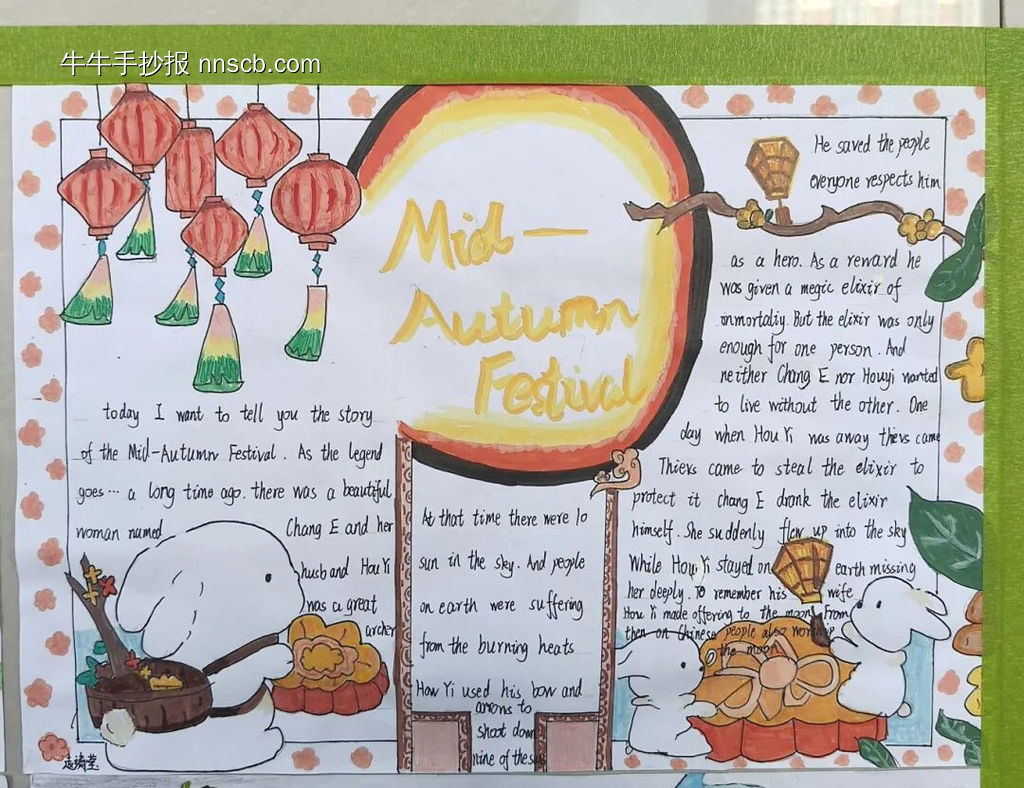 牛牛手抄报 nnscb.com
Mid-
Autumn
Festival
today I want to tell you the story
of the Mid-Autumn Festival. As the legend
goes… a long time ago. there was a beautiful
woman named Chang E and her
husband Hou Yi
was a great
archer
At that time there were 10
sun in the sky. And people
on earth were suffering
from the burning heats
How Yi used his bow and
arrons to
shoot down
nine of the
He saved the people
everyone respects him
as a hero. As a reward he
was given a megic elixir of
inmortaliy. But the elixir was only
enough for one person. And
neither Chang E nor Houyi wanted
to live without the other. One
day when Hou Yi was away thievs came
Thievs came to steal the elixir to
protect it chang E drank the elixir
himself. She suddenly flew up into the sky
While Hou Yi stayed on earth missing
her deeply. To remember his wife
How Yi made offering to the moon. From
then on Chinese people also worship
the moon